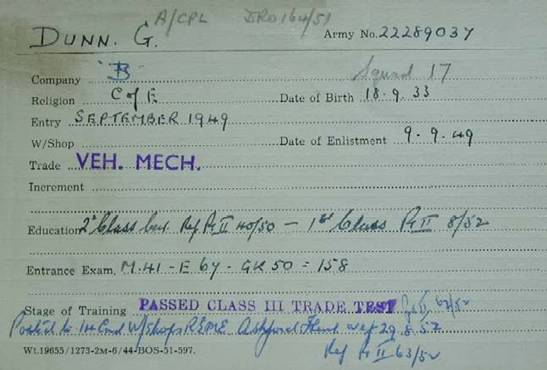 A/CPL IRO 164/51
DUNN. G. Army No. 22289037
Company "B" Squad 17
Religion C of E Date of Birth 18.9.33
Entry SEPTEMBER 1949
W/Shop Date of Enlistment 9.9.49
Trade VEH. MECH.
Increment
Education 2nd Class Cert Ref Pt II 40/50 — 1st Class Pt II 8/52
Entrance Exam. M.41 - E 67 - GK 50 = 158
Stage of Training PASSED CLASS III TRADE TEST Pt II 62/52
Posted to 14 Cmd W/Shops REME Ashford Kent wef 29.8.52
Wt.19655/1273-2M-6/44-BOS-51-597. Ref Pt II 63/52